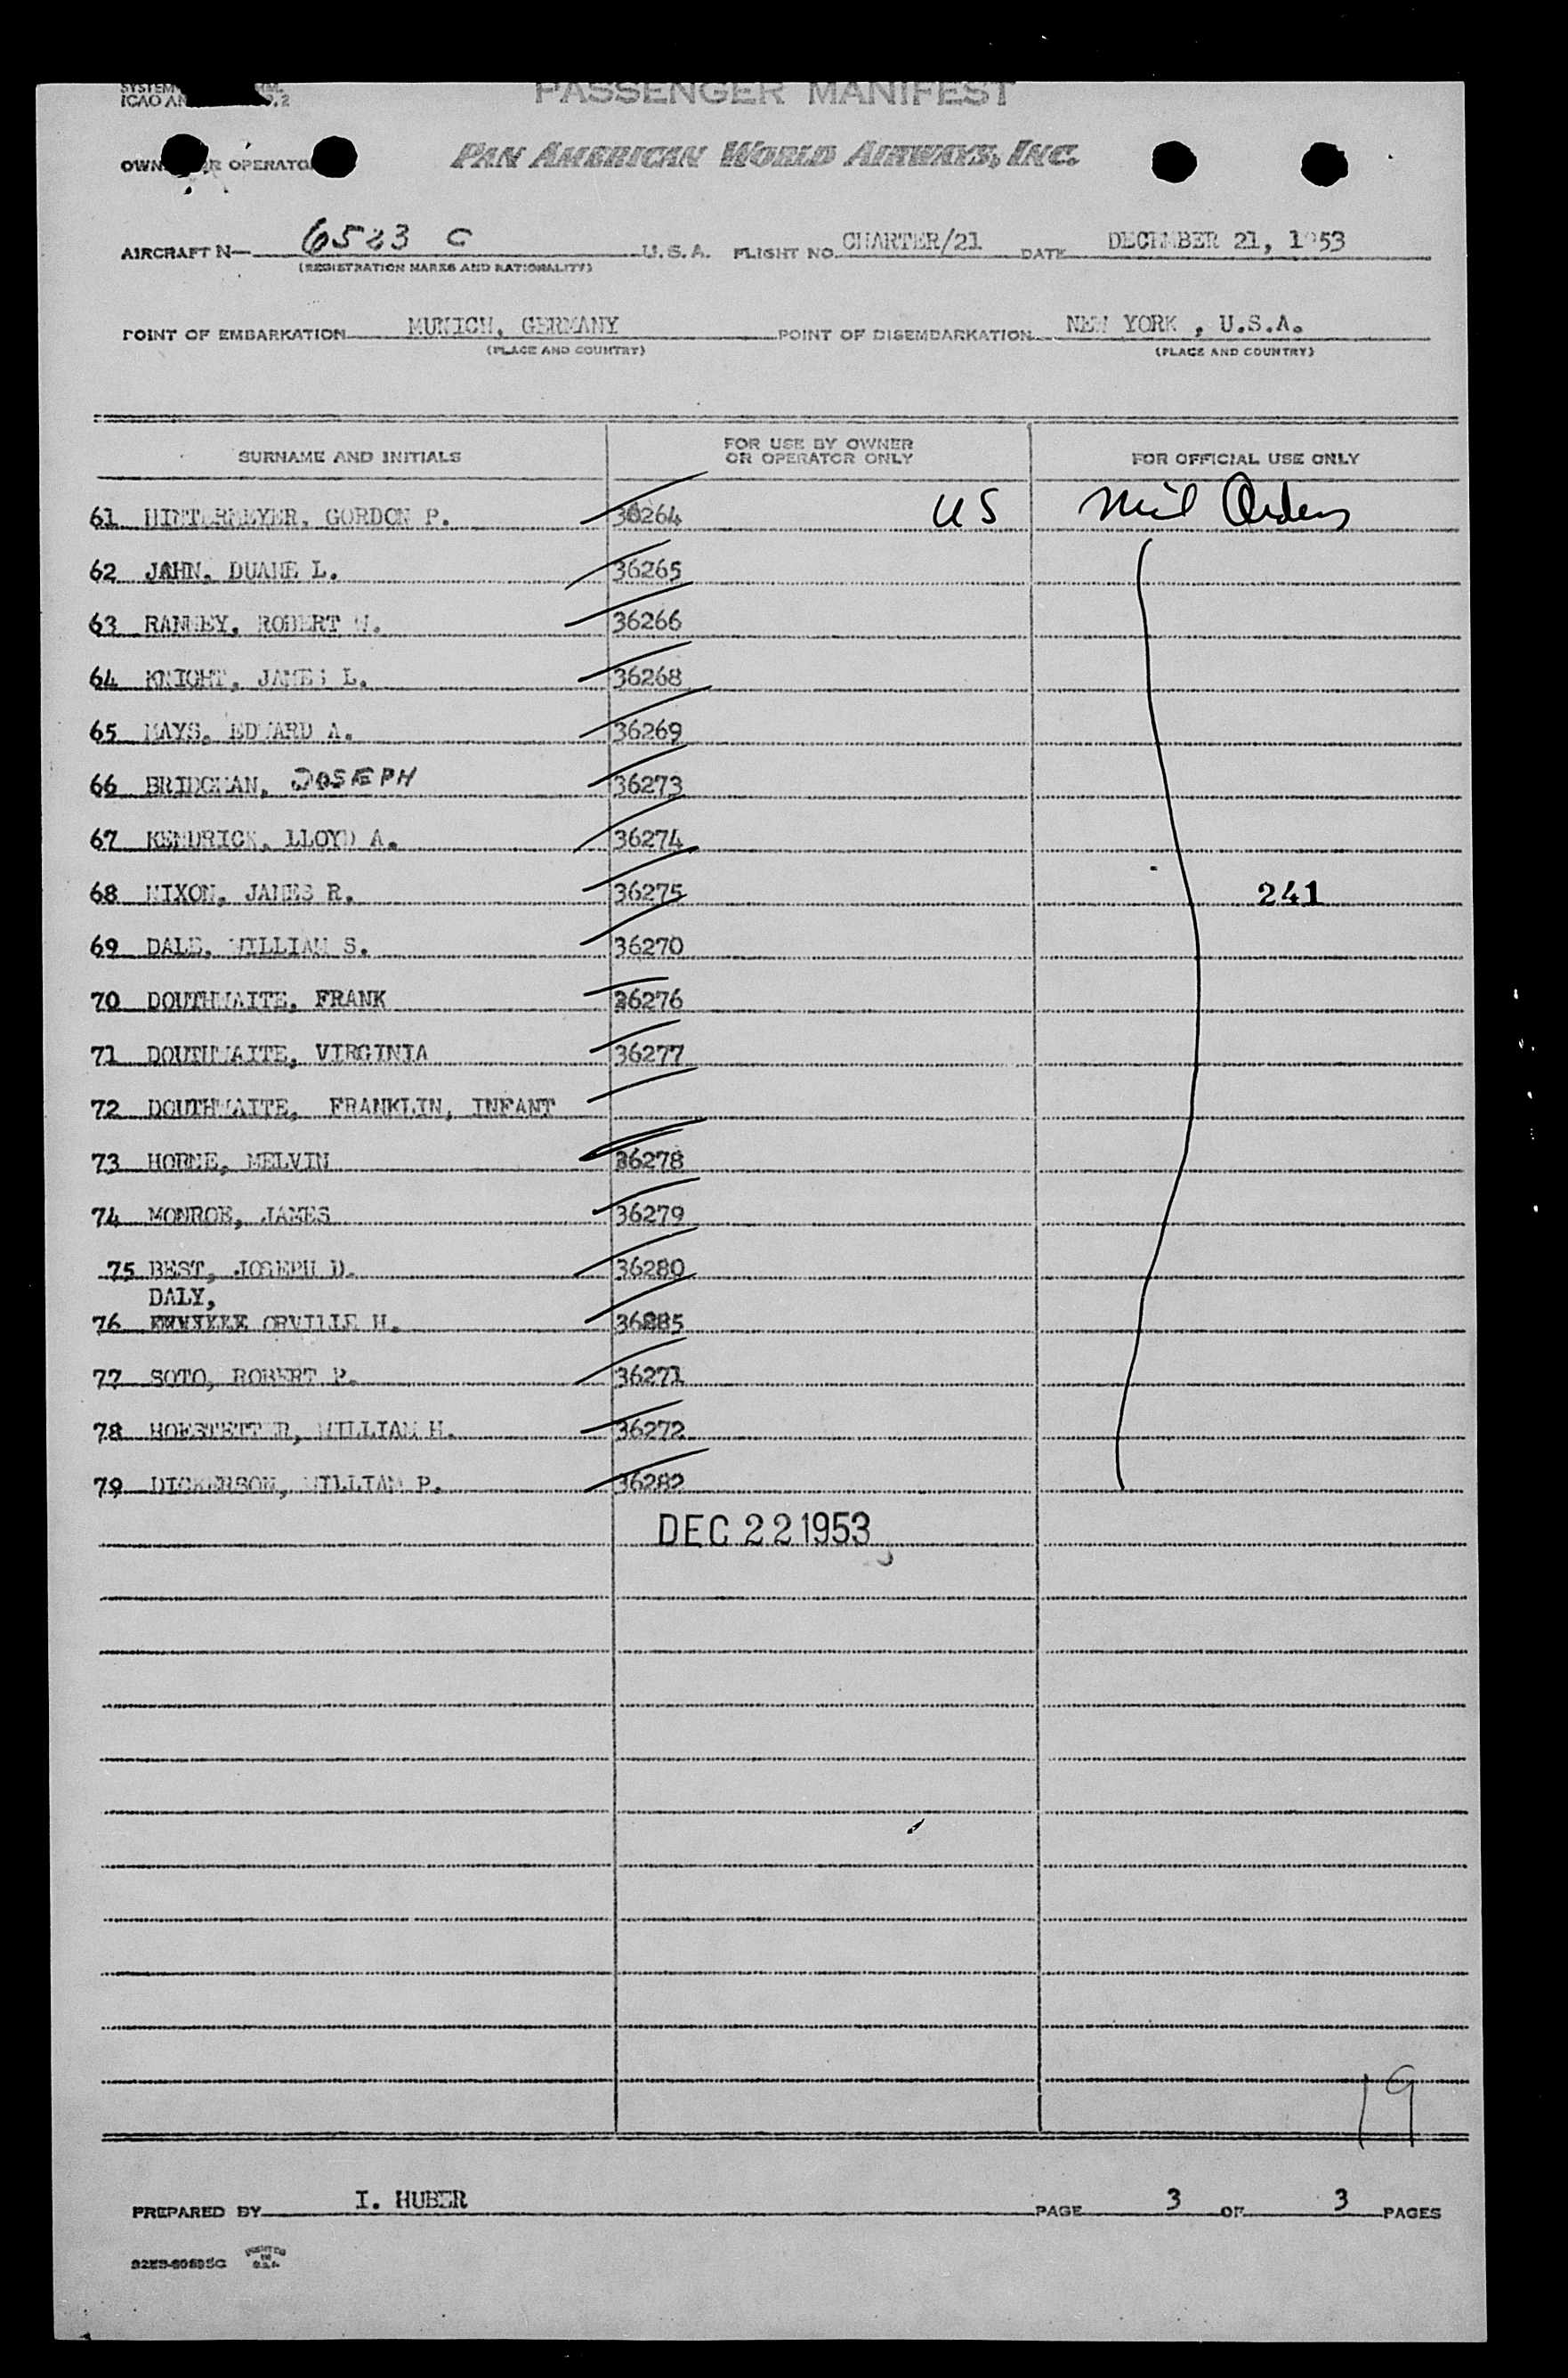 PASSENGER MANIFEST
PAN AMERICAN WORLD AIRWAYS, INC.
AIRCRAFT N— 6523 C U.S.A. FLIGHT NO. CHARTER/21 DATE DECEMBER 21, 1953
(REGISTRATION MARKS AND NATIONALITY)
POINT OF EMBARKATION MUNICH, GERMANY POINT OF DISEMBARKATION NEW YORK , U.S.A.
(PLACE AND COUNTRY) (PLACE AND COUNTRY)
SURNAME AND INITIALS FOR USE BY OWNER OR OPERATOR ONLY FOR OFFICIAL USE ONLY
61 HINTERMEYER, GORDON P. 36264 US Mil Orders
62 JAHN, DUANE L. 36265
63 RANNEY, ROBERT W. 36266
64 KNIGHT, JAMES L. 36268
65 MAYS, EDWARD A. 36269
66 BRIDGMAN, JOSEPH 36273
67 KENDRICK, LLOYD A. 36274
68 NIXON, JAMES R. 36275 241
69 DALE, WILLIAM S. 36270
70 DOUTHWAITE, FRANK 36276
71 DOUTHWAITE, VIRGINIA 36277
72 DOUTHWAITE, FRANKLIN, INFANT
73 HORNE, MELVIN 36278
74 MONROE, JAMES 36279
75 BEST, JOSEPH D. 36280
DALY,
76 ORVILLE H. 36285
77 SOTO, ROBERT P. 36271
78 HOFSTETTER, WILLIAM H. 36272
79 DICKERSON, WILLIAM P. 36282
DEC 22 1953
19
PREPARED BY I. HUBER PAGE 3 OF 3 PAGES
PRINTED IN U.S.A.